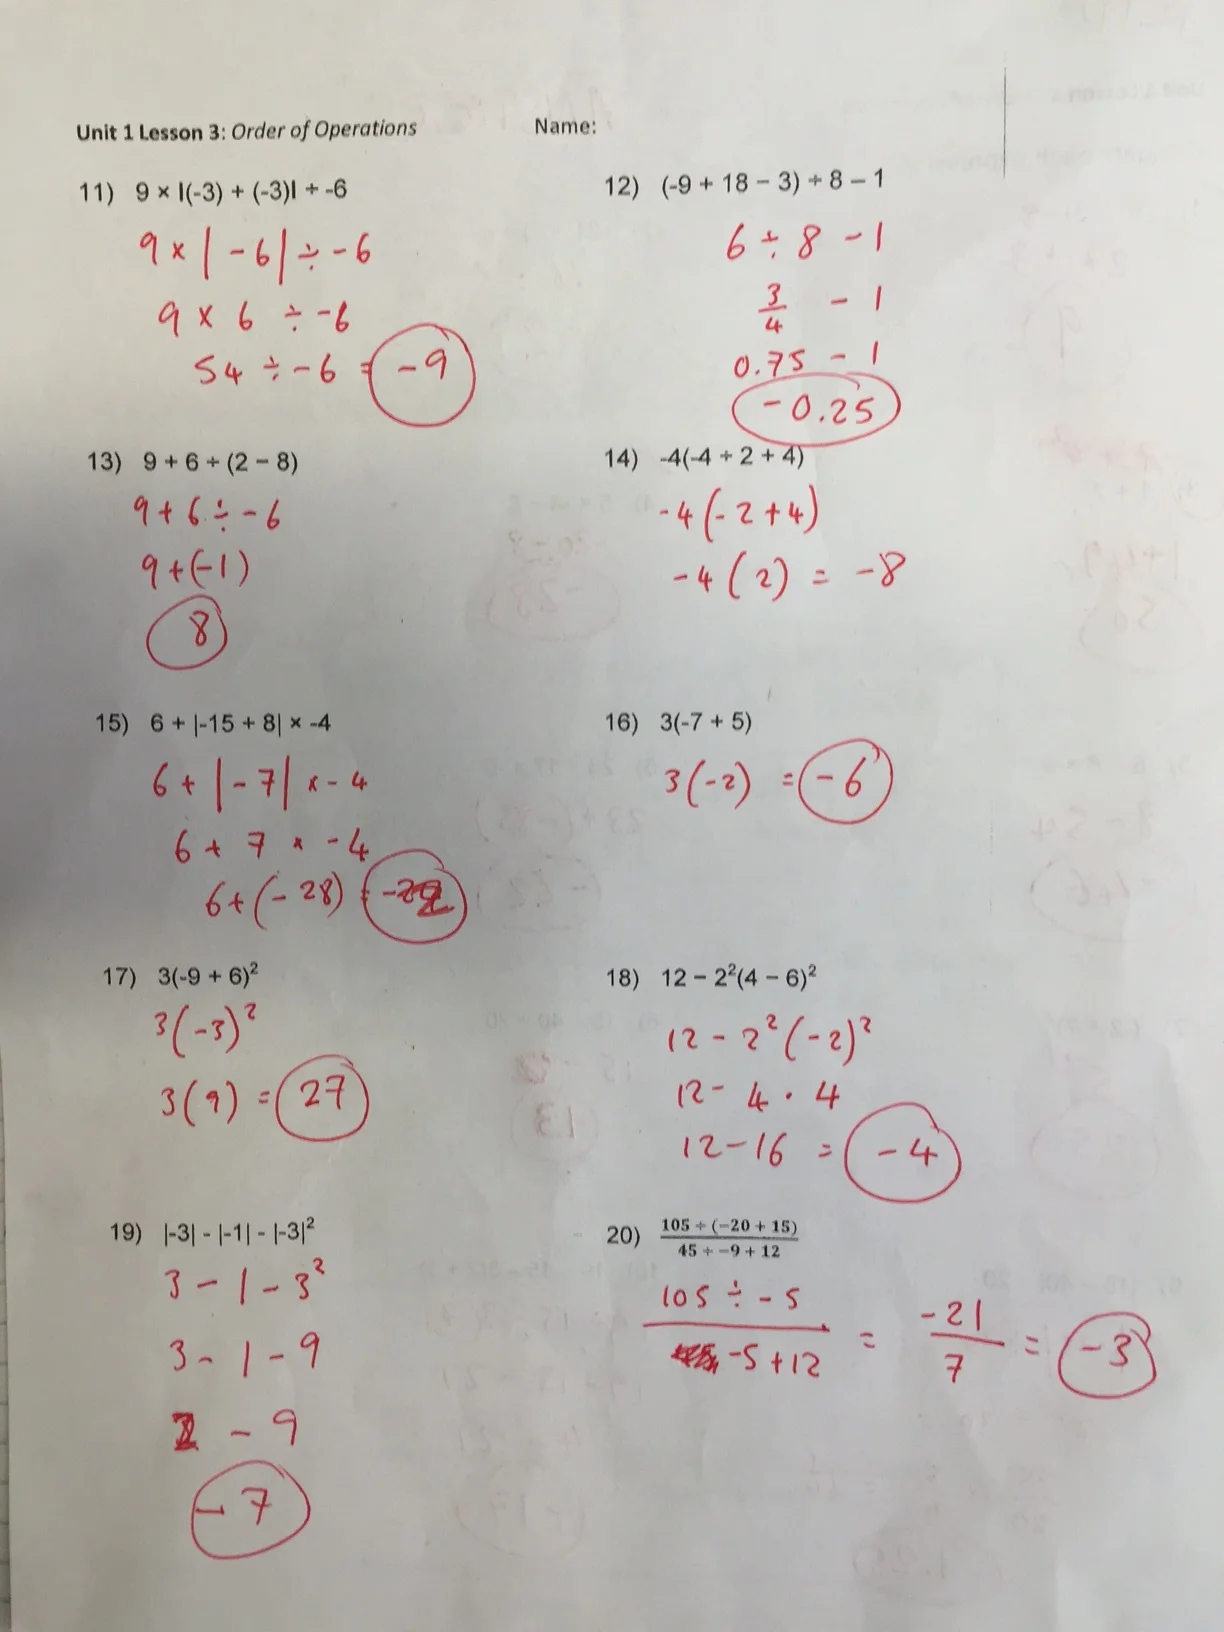 Unit 1 Lesson 3: Order of Operations Name:
11) 9 × |(-3) + (-3)| ÷ -6
9 × |-6| ÷ -6
9 × 6 ÷ -6
54 ÷ -6 = -9
12) (-9 + 18 – 3) ÷ 8 – 1
6 ÷ 8 - 1
3/4 - 1
0.75 - 1
-0.25
13) 9 + 6 ÷ (2 – 8)
9 + 6 ÷ -6
9 + (-1)
8
14) -4(-4 ÷ 2 + 4)
-4(-2+4)
-4(2) = -8
15) 6 + |-15 + 8| × -4
6 + |-7| × -4
6 + 7 × -4
6 + (-28) = -22
16) 3(-7 + 5)
3(-2) = -6
17) 3(-9 + 6)²
3(-3)²
3(9) = 27
18) 12 – 2²(4 – 6)²
12 - 2²(-2)²
12 - 4 · 4
12 - 16 = -4
19) |-3| - |-1| - |-3|²
3 - 1 - 3²
3 - 1 - 9
2 - 9
-7
20) 105 ÷ (−20 + 15)
45 ÷ −9 + 12
105 ÷ -5
-5 + 12
= -21/7 = -3